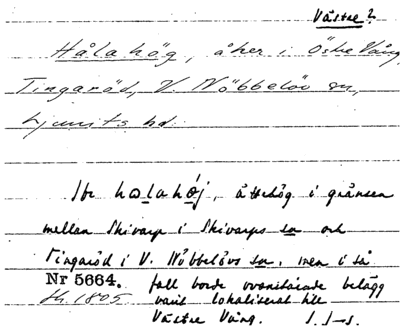 Västre?
Hålahög, åker i Östre Vång,
Tingaröd, V. Nöbbelöv sn,
Ljunits hd.
Jfr halahøj, ättehög i gränsen
mellan Skivarp i Skivarps sn och
Tingaröd i V. Nöbbelövs sn, men i så
Nr 5664. fall borde ovanstående belägg
1805 varit lokaliserat till
Västre Vång.